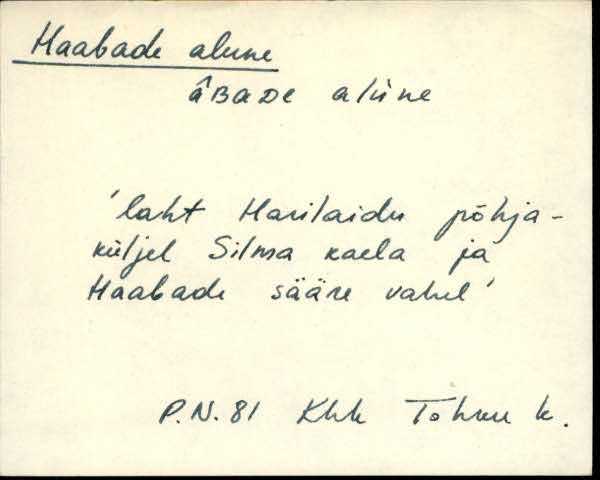 Haabade alune
âBADE alüne
'laht Harilaidu põhja-
küljel Silma kaela ja
Haabade sääre vahel'
P.N. 81 Khk Tohvri k.